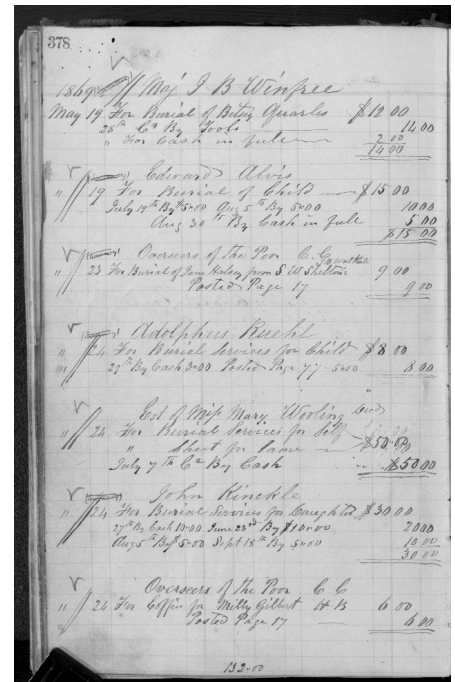 378
1869 Maj J B Winfree
May 19 For Burial of Betsy Quarles $12 00
28th Cr By Tools 14 00
" For Cash in full 2 00
14 00
Edward Alvis
" 19 For Burial of Child $15 00
July 19th By $5.00 Aug 5th By 5.00 10 00
Aug 30th By Cash in full 5 00
$15 00
Overseers of the Poor C. C.
" 23 For Burial of Sam Kelsey from S W Shelton's 9 00
Posted Page 17 9 00
Adolphus Ruehl
" 24 For Burial Services for Child $8 00
" 27th By Cash 3.00 Posted Page 77 5.00 8.00
Est of Miss Mary Wooling Decd
" 24 For Burial Services for Self
" Sheet for Same $50.00
July 7th Cr By Cash $50 00
John Kinckle
" 24 For Burial Services for Daughter $30 00
27th By Cash 10.00 June 23rd By $10.00 20 00
Aug 5th By $5.00 Sept 18th By 5.00 10 00
30 00
Overseers of the Poor C C
" 24 For Coffin for Milly Gilbert H B 6 00
Posted Page 17 6 00
132.00